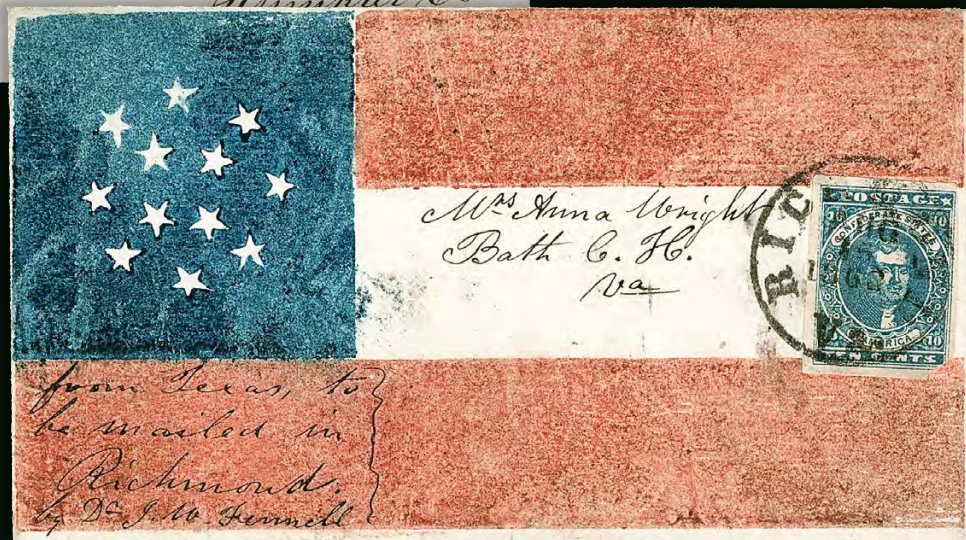 Mrs Anna Wright
Bath C. H.
Va
RIC
POSTAGE
10 10
CONFEDERATE STATES
AMERICA
10
TEN CENTS
from Texas, to
be mailed in
Richmond.
by Dr J W Fennell